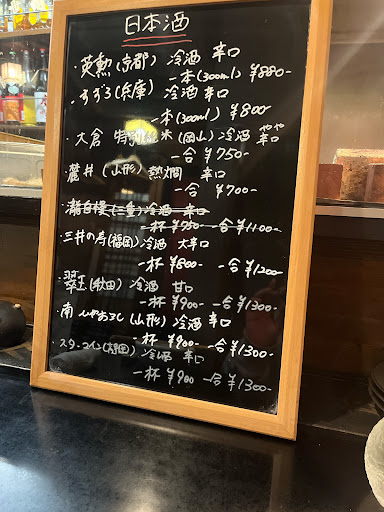 日本酒
・英勲(京都) 冷酒 辛口
一本(300ml) ¥880-
・すずろ(兵庫) 冷酒 辛口
一本(300ml) ¥800
・大倉 特別純米(岡山) 冷酒 やや辛口
一合 ¥750-
・麓井(山形) 熱燗 辛口
一合 ¥700-
(三重) 冷酒 辛口
一杯 ¥750- 一合 ¥1100-
・三井の寿(福岡) 冷酒 大辛口
一杯 ¥800- 一合 ¥1200
・翠玉(秋田) 冷酒 甘口
一杯 ¥900- 一合 ¥1300-
・南 (山形) 冷酒 辛口
一杯 ¥900- 一合 ¥1300-
・スターコイン(静岡) 冷酒 辛口
一杯 ¥900 一合 ¥1300-